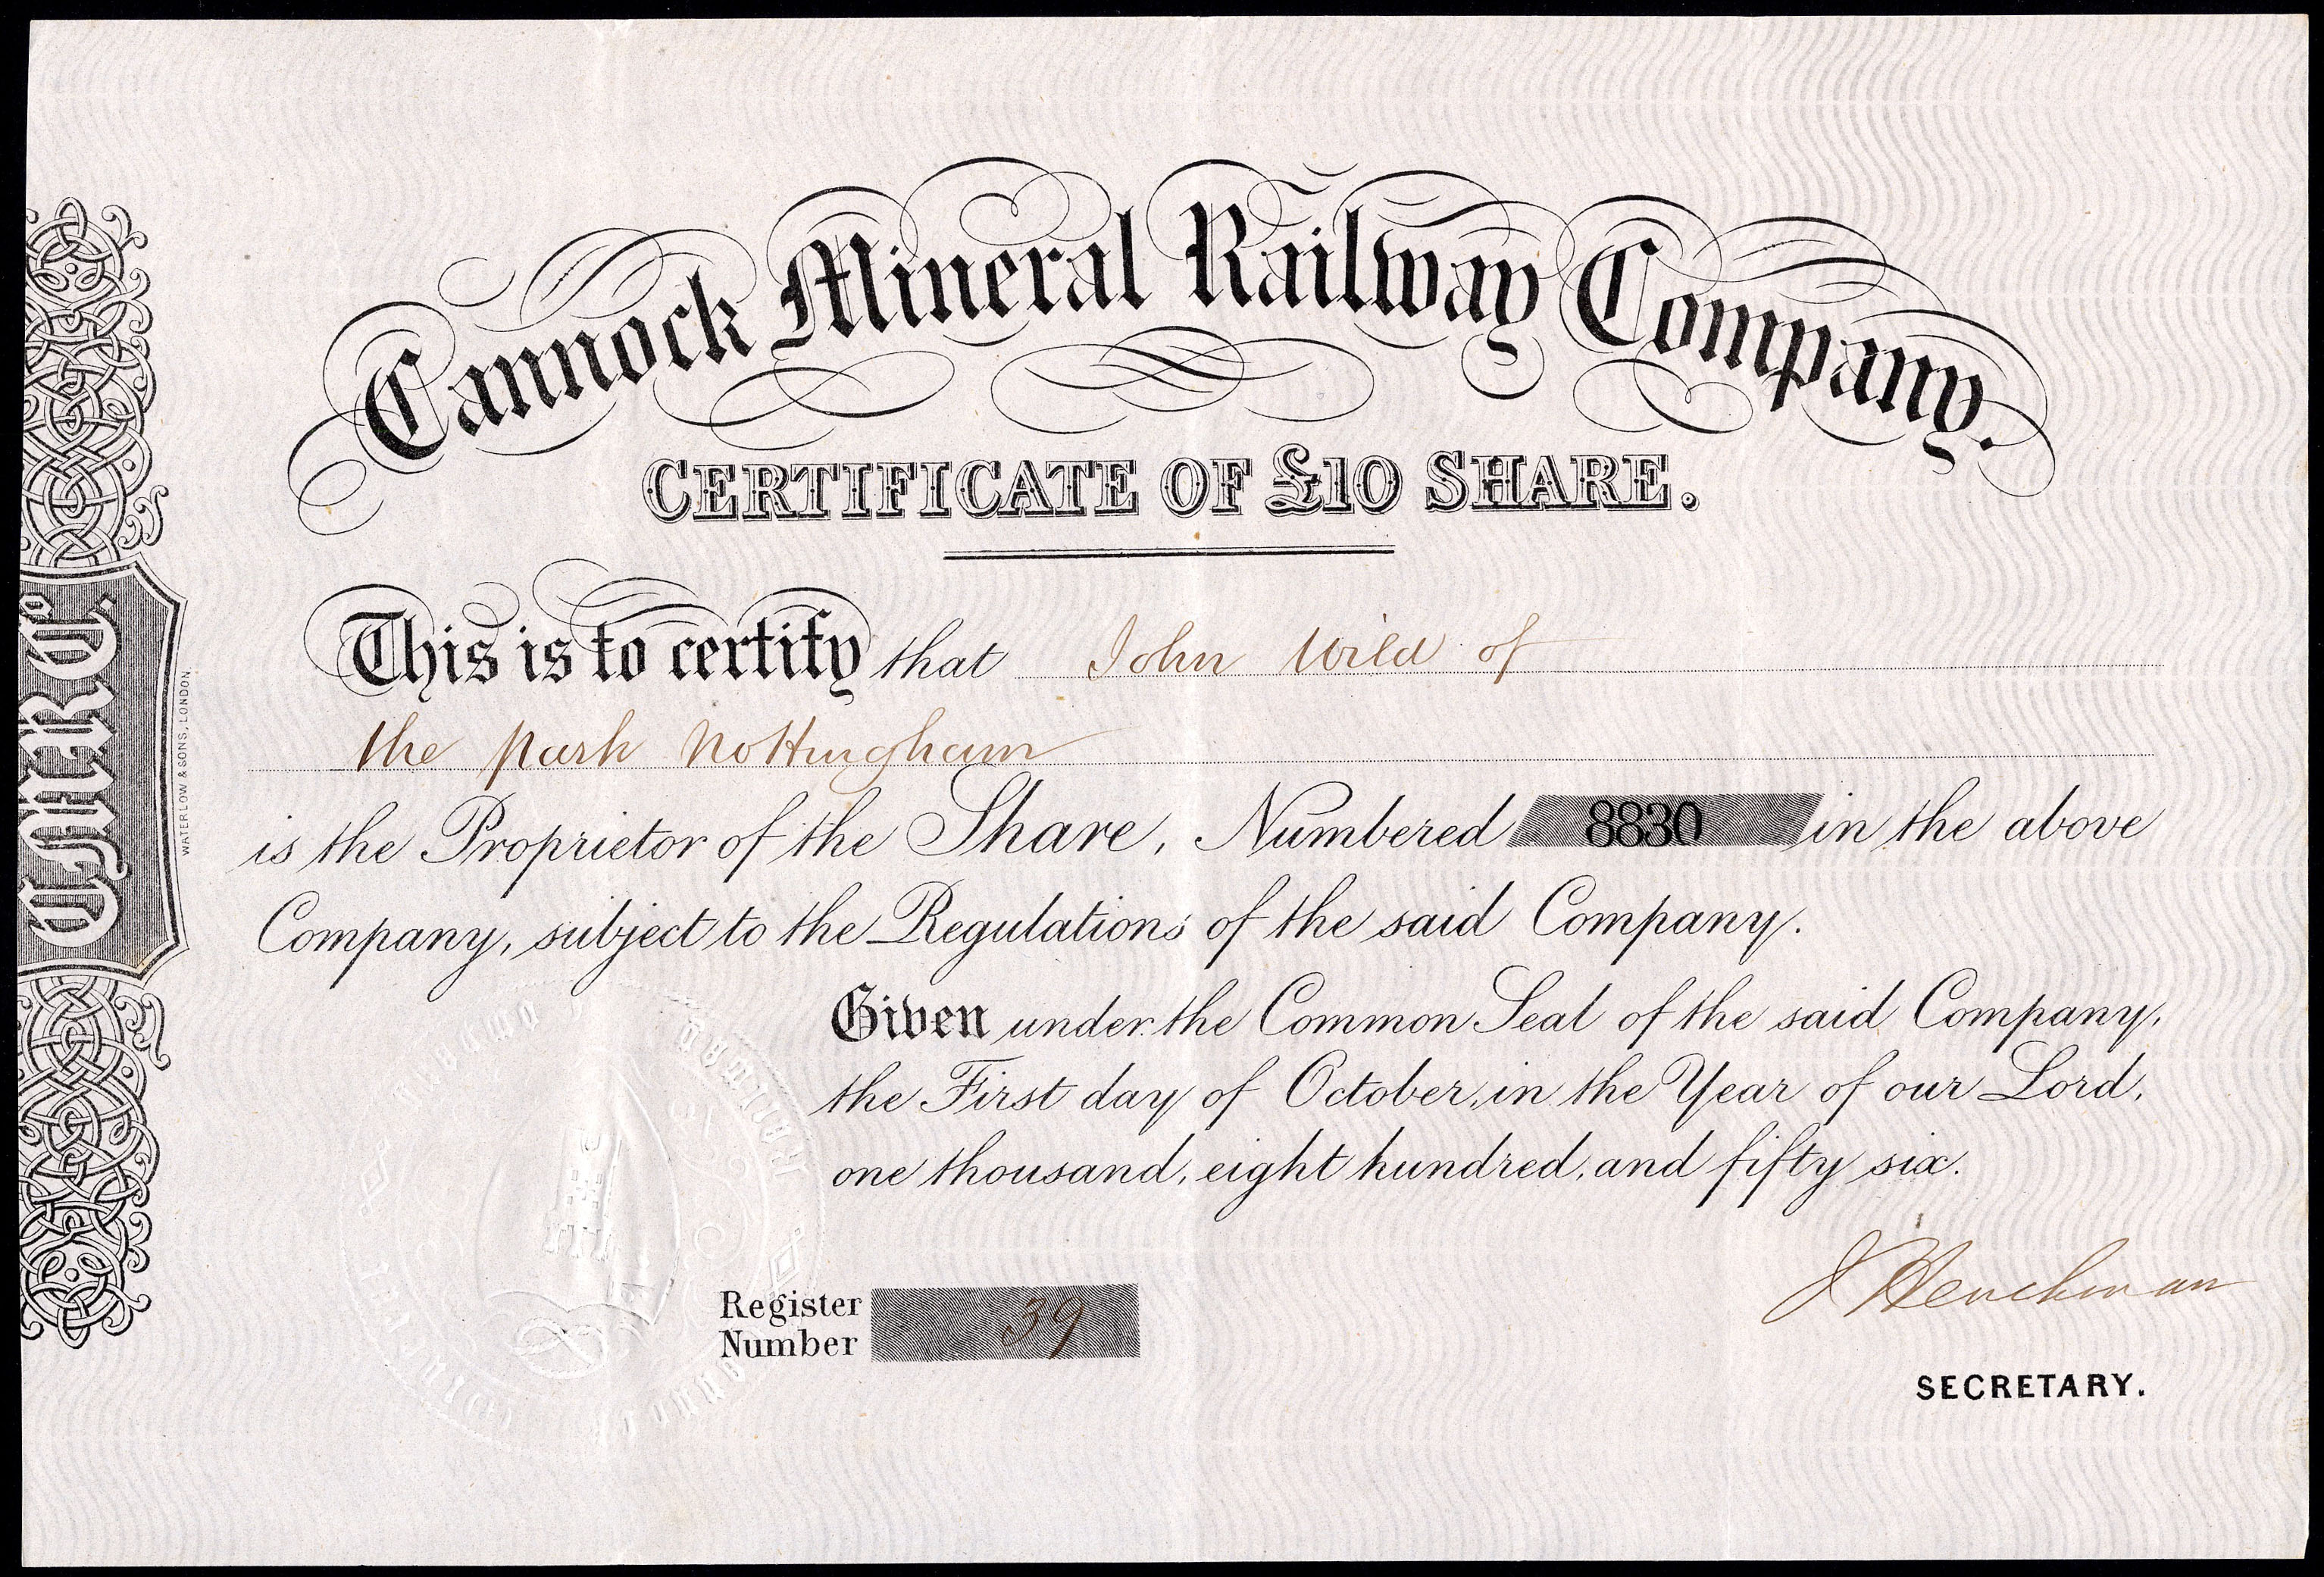 Cannock Mineral Railway Company.
CERTIFICATE OF £10 SHARE.
This is to certify that John Wild of
the Park Nottingham
is the Proprietor of the Share, Numbered 8830 in the above
Company, subject to the Regulations of the said Company.
Given under the Common Seal of the said Company,
the First day of October, in the Year of our Lord,
one thousand, eight hundred, and fifty six.
J Henchman
SECRETARY.
Register
Number 39
CMRCo.
WATERLOW & SONS, LONDON